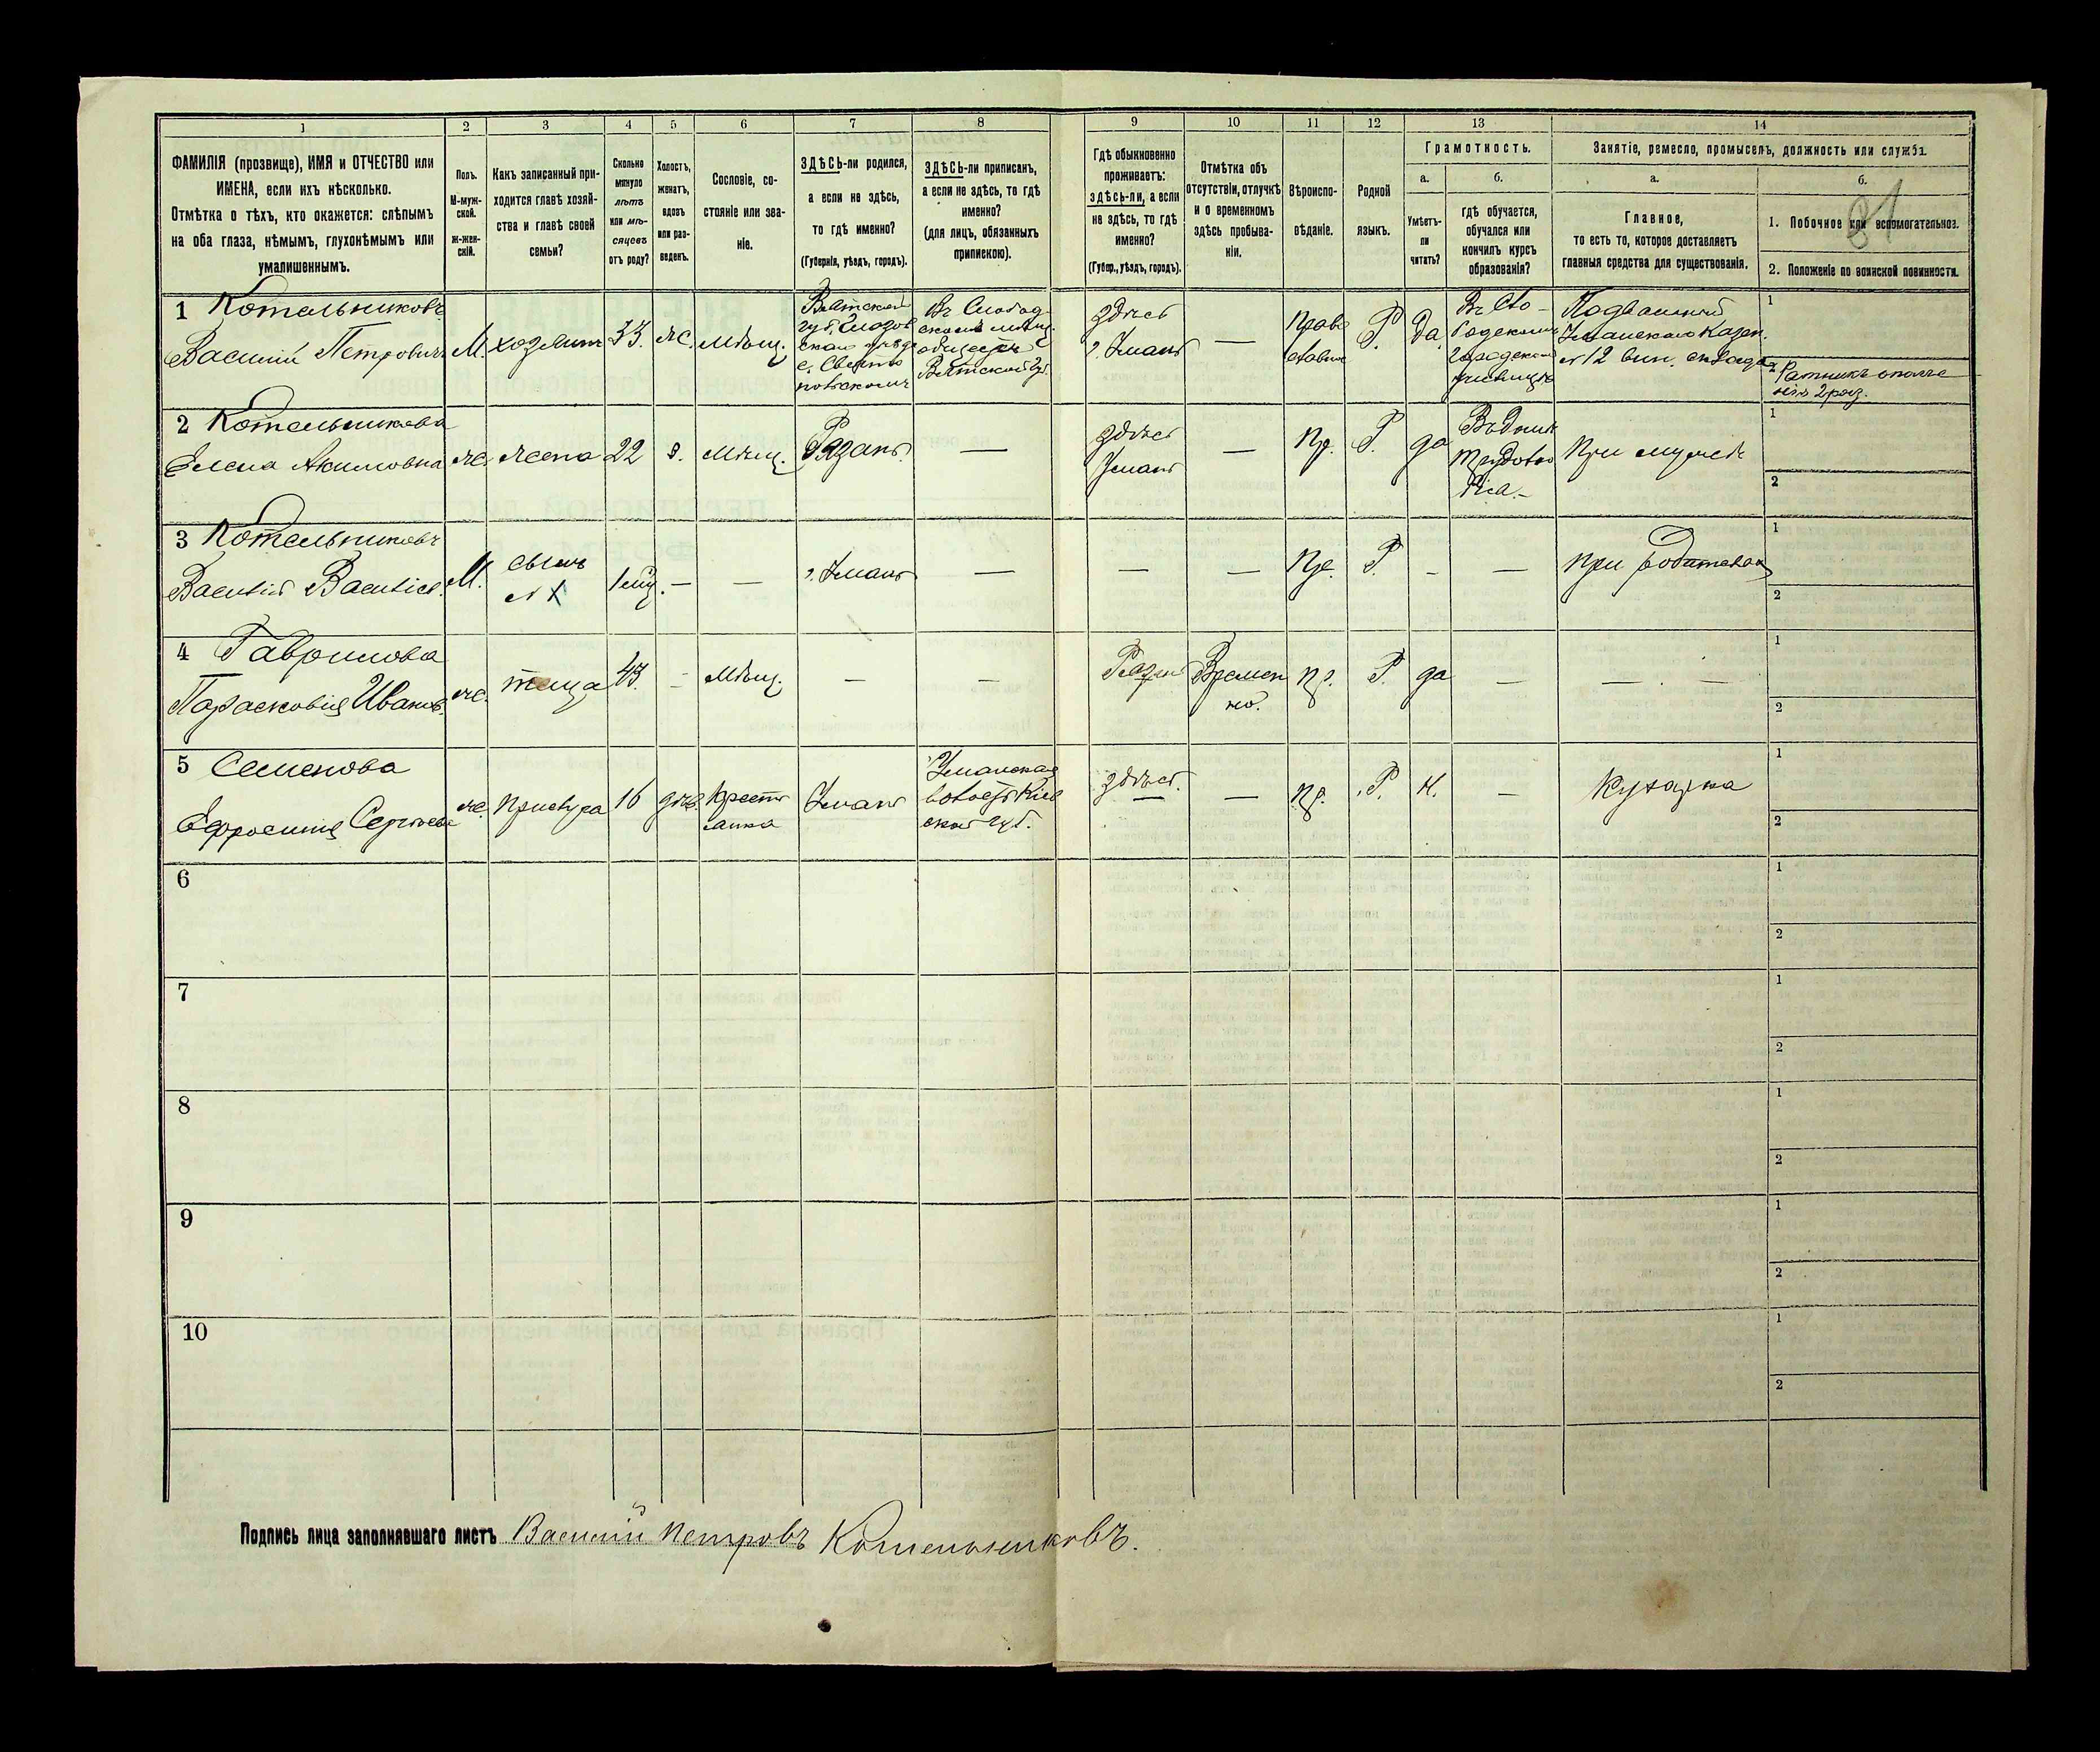 1 2 3 4 5 6 7 8 9 10 11 12 13 14
ФАМИЛІЯ (прозвище), ИМЯ и ОТЧЕСТВО или
ИМЕНА, если ихъ нѣсколько.
Отмѣтка о тѣхъ, кто окажется: слѣпымъ
на оба глаза, нѣмымъ, глухонѣмымъ или
умалишеннымъ.
Полъ.
М-муж-
ской.
ж-жен-
скій.
Какъ записанный при-
ходится главѣ хозяй-
ства и главѣ своей
семьи?
Сколько
минуло
лѣтъ
или мѣ-
сяцевъ
отъ роду?
Холостъ,
женатъ,
вдовъ
или раз-
веденъ.
Сословіе, со-
стояніе или зва-
ніе.
ЗДѢСЬ-ли родился,
а если не здѣсь,
то гдѣ именно?
(Губернія, уѣздъ, городъ).
ЗДѢСЬ-ли приписанъ,
а если не здѣсь, то гдѣ
именно?
(для лицъ, обязанныхъ
припискою).
Гдѣ обыкновенно
проживаетъ:
здѣсь-ли, а если
не здѣсь, то гдѣ
именно?
(Губер., уѣздъ, городъ).
Отмѣтка объ
отсутствіи, отлучкѣ
и о временномъ
здѣсь пребыва-
ніи.
Вѣроиспо-
вѣданіе.
Родной
языкъ.
Грамотность.
а.
Умѣетъ-
ли
читать?
б.
гдѣ обучается,
обучался или
кончилъ курсъ
образованія?
Занятіе, ремесло, промыселъ, должность или служба.
а.
Главное,
то есть то, которое доставляетъ
главныя средства для существованія.
б.
1. Побочное или вспомогательное.
2. Положеніе по воинской повинности.
81
1 Котельниковъ
Василій Петровичъ
М.
хозяинъ
33.
ж.
мѣщ.
Вятской
губ. Глазов
скаго уѣзда
с. Святи
Въ Слобод
скомъ мѣщ.
обществѣ
Вятской губ.
здѣсь
г. Умань
—
Право
славн
Р.
Да
городском
училищѣ
Подвальный
Уманскаго Казен.
№12 вин. склада
1
2 Ратникъ ополче
нія 2 раз.
2 Котельникова
Елена Акимовна
ж.
жена
22
з.
мѣщ.
Рязань.
—
здѣсь
Умань
—
Пр.
Р.
да
При мужѣ
1
2
3 Котельниковъ
Василій Васильев.
М.
сынъ
№ 1
1 мѣц.
—
—
г. Умань
—
—
—
Пр.
Р.
—
—
при родителях
1
2
4 Гаврилова
Парасковія Иванов.
ж.
теща
43.
—
мѣщ.
—
—
Рязань
Времен
но.
пр.
Р.
да
—
— . —
1
2
5 Семенова
Ефросинія Сергѣева
ж.
прислуга
16
дѣв.
Кресть
янка
Умань
Уманская
волость Кіев
ской губ.
здѣсь.
—
—
пр.
Р.
н.
—
Кухарка
1
2
6
1
2
7
1
2
8
1
2
9
1
2
10
1
2
Подпись лица заполнявшаго листъ Василій Петровъ Котельниковъ.